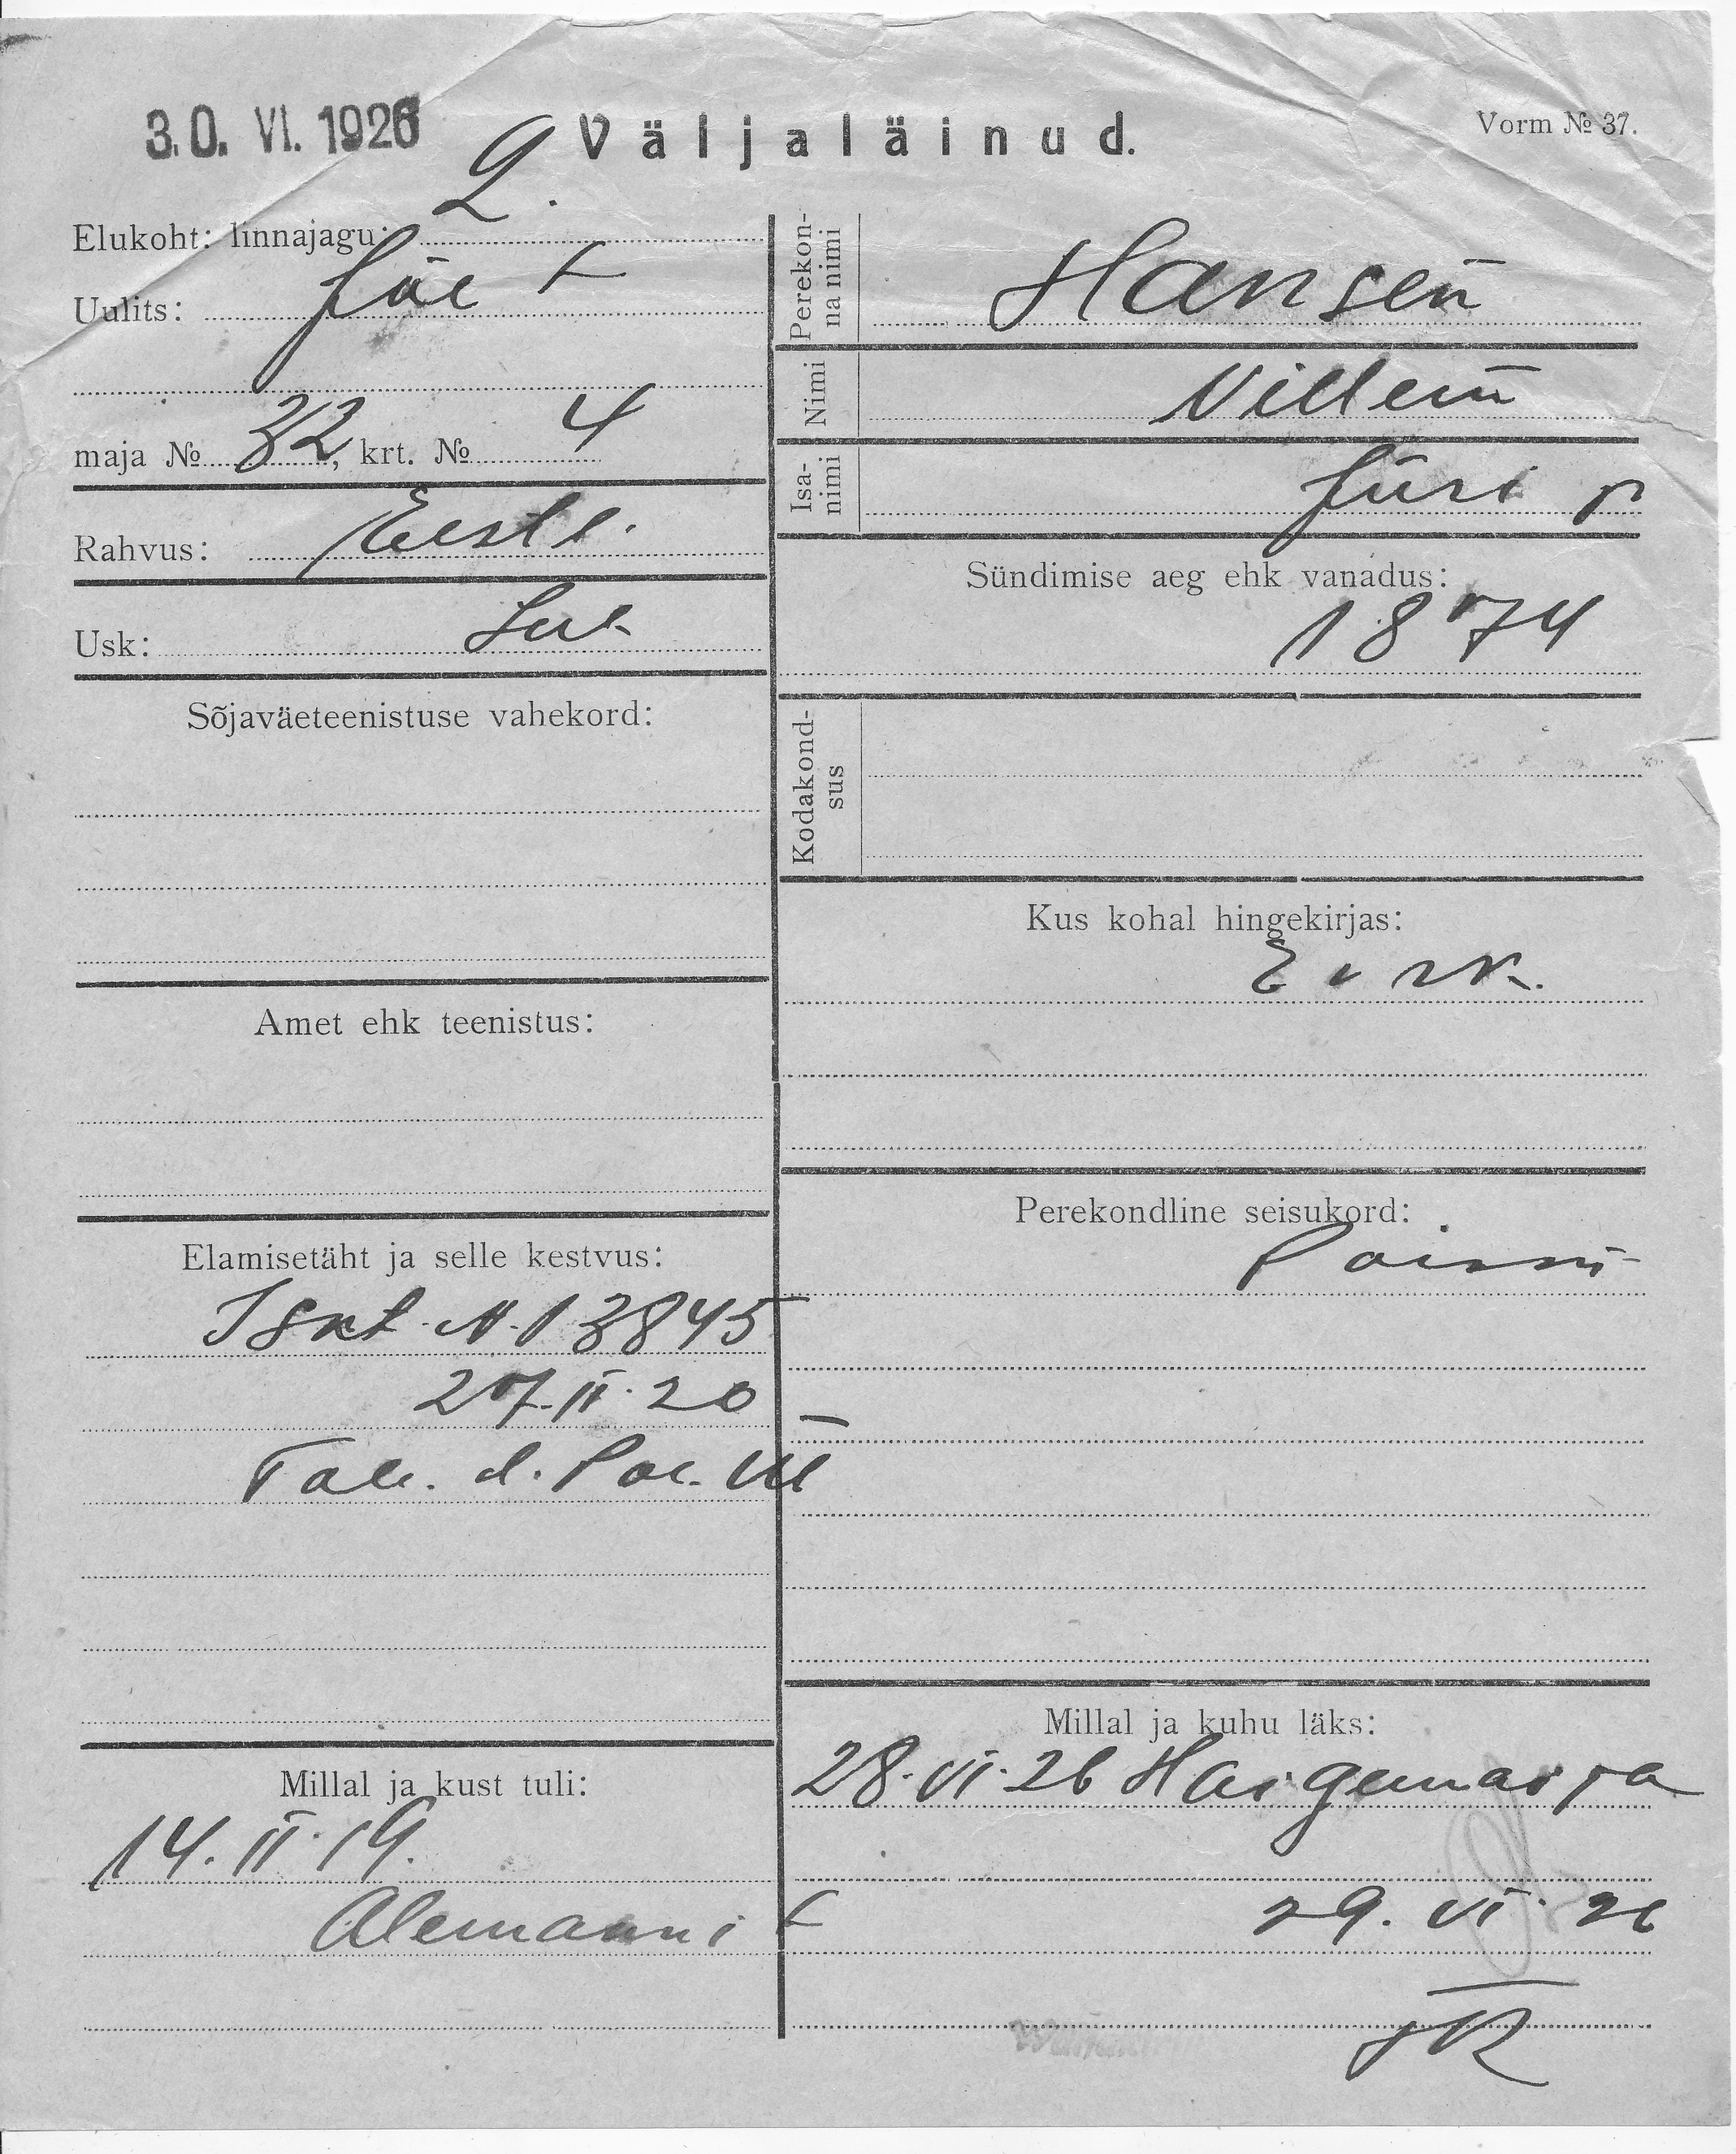 30. VI. 1926
Väljaläinud.
Vorm № 37.
2.
Elukoht: linnajagu:
Uulits: Jõe
maja № 32, krt. № 4
Rahvus: Eestl.
Usk: Lut
Sõjaväeteenistuse vahekord:
Amet ehk teenistus:
Elamisetäht ja selle kestvus:
Iskt. N. 13845
27. II. 20
Tall. l. Pol.
Millal ja kust tuli:
14. II. 19.
Alemanni
Perekonna nimi Hansen
Nimi Villem
Isanimi Jüri p
Sündimise aeg ehk vanadus:
1874
Kodakondsus
Kus kohal hingekirjas:
Perekondline seisukord:
Millal ja kuhu läks:
28. VI. 26 Haigemaija
29. VI. 26